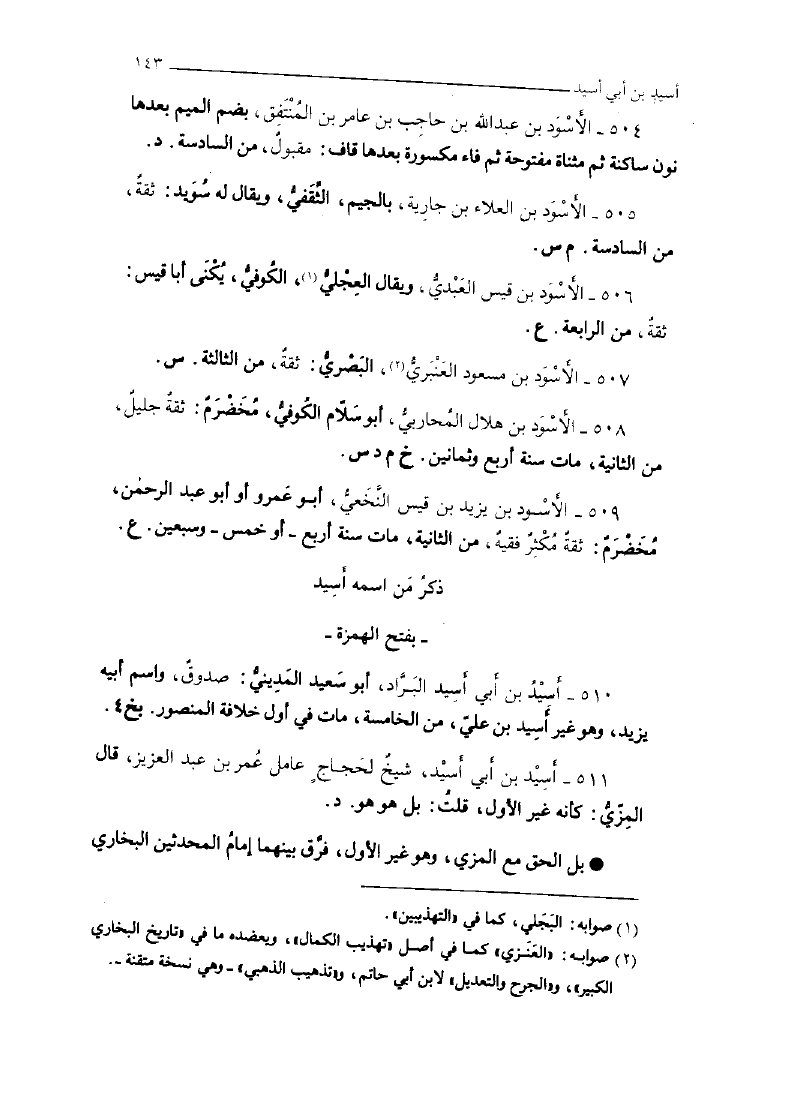 أسيد بن أبي أسيد ١٤٣
٥٠٤ ـ الأَسْوَد بن عبدالله بن حاجِب بن عامر بن المُنْتَفِق، بضم الميم بعدها
نون ساكنة ثم مثناة مفتوحة ثم فاء مكسورة بعدها قاف: مقبولٌ، من السادسة. د.
٥٠٥ ـ الأَسْوَد بن العلاء بن جارية، بالجيم، الثَّقَفيُّ، ويقال له سُوَيد: ثقةٌ،
من السادسة. م س.
٥٠٦ ـ الأَسْوَد بن قيس العَبْديُّ، ويقال العِجْليُّ(١)، الكُوفيُّ، يُكْنَى أبا قيس:
ثقةٌ، من الرابعة. ع.
٥٠٧ ـ الأَسْوَد بن مسعود العَنْبَريُّ(٢)، البَصْريُّ: ثقةٌ، من الثالثة. س.
٥٠٨ ـ الأَسْوَد بن هلال المُحاربيُّ، أبو سَلّام الكُوفيُّ، مُخَضْرَمٌ: ثقةٌ جليلٌ،
من الثانية، مات سنة أربع وثمانين. خ م د س.
٥٠٩ ـ الأَسْود بن يزيد بن قيس النَّخَعيُّ، أبو عَمرو أو أبو عبد الرحمٰن،
مُخَضْرَمٌ: ثقةٌ مُكْثِرٌ فقيهٌ، من الثانية، مات سنة أربع ـ أو خمس ـ وسبعين. ع.
ذكرُ مَن اسمه أَسِيد
ـ بفتح الهمزة ـ
٥١٠ ـ أَسِيْدُ بن أبي أَسِيد البَرَّاد، أبو سَعيد المَدِينيُّ: صدوقٌ، واسم أبيه
يزيد، وهو غير أَسِيد بن عليّ، من الخامسة، مات في أول خلافة المنصور. بخ ٤.
٥١١ ـ أَسِيْد بن أبي أَسِيْد، شيخٌ لحَجاجٍ عاملِ عُمر بن عبد العزيز، قال
المِزّيُّ: كأنه غير الأول، قلتُ: بل هو هو. د.
● بل الحق مع المزي، وهو غير الأول، فرَّق بينهما إمامُ المحدثين البخاري
(١) صوابه: البَجَلي، كما في «التهذيبين».
(٢) صوابه: «العَنَزي» كما في أصل «تهذيب الكمال»، ويعضده ما في «تاريخ البخاري
الكبير»، و«الجرح والتعديل» لابن أبي حاتم، و«تذهيب الذهبي» ـ وهي نسخة متقنة ـ.